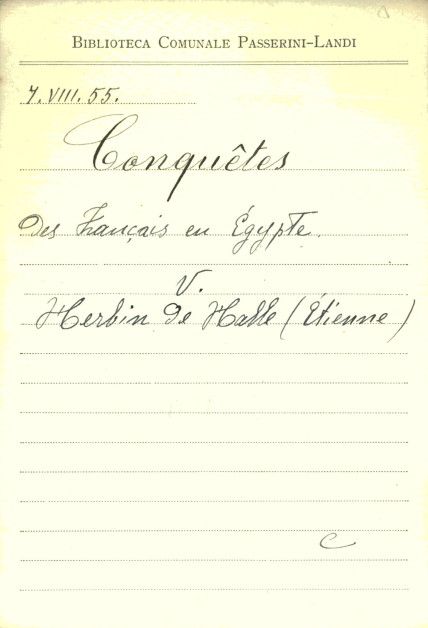 BIBLIOTECA COMUNALE PASSERINI-LANDI
7.VIII.55.
Conquêtes
des Français en Égypte.
V.
Herbin de Halle (Étienne)
C